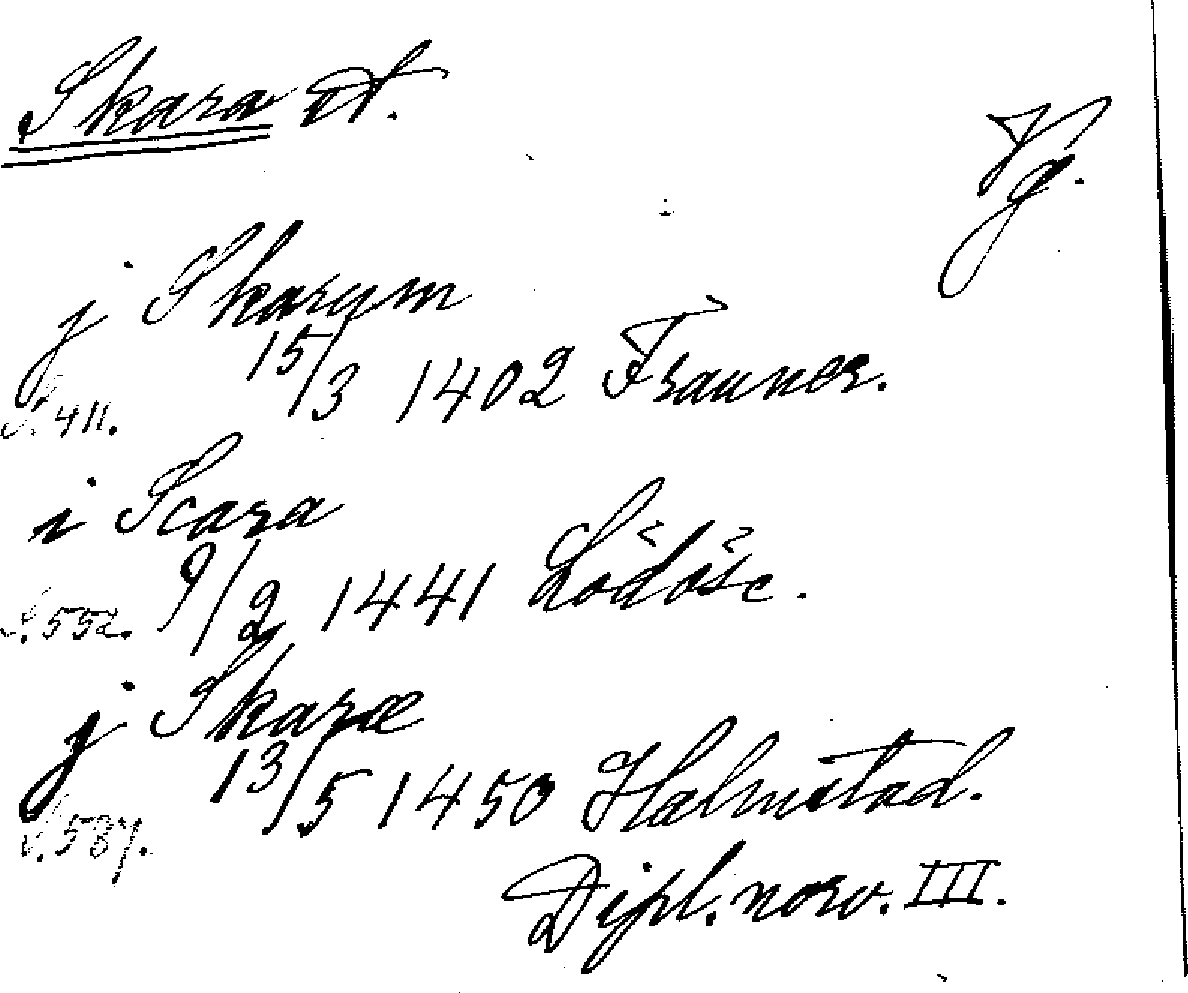 Skara st.
Vg.
j Skarum
15/3 1402 Frauner.
S. 411.
i Scara
9/2 1441 Lödöse.
S. 552.
j Skaræ
13/5 1450 Halmstad.
S. 587.
Dipl. norv. III.